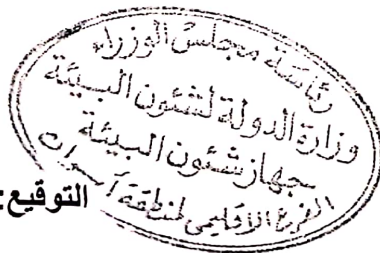 رئاسة مجلس الوزراء
وزارة الدولة لشئون البيئة
جهاز شئون البيئة
الفرع الاقليمى لمنطقة أسوان
التوقيع: